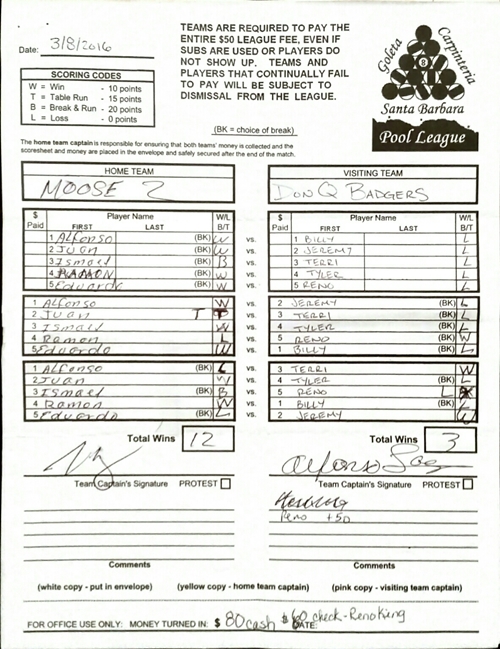 Date: 3/8/2016
TEAMS ARE REQUIRED TO PAY THE
ENTIRE $50 LEAGUE FEE, EVEN IF
SUBS ARE USED OR PLAYERS DO
NOT SHOW UP. TEAMS AND
PLAYERS THAT CONTINUALLY FAIL
TO PAY WILL BE SUBJECT TO
DISMISSAL FROM THE LEAGUE.
(BK = choice of break)
SCORING CODES
W = Win - 10 points
T = Table Run - 15 points
B = Break & Run - 20 points
L = Loss - 0 points
Goleta Carpinteria
8
Santa Barbara
Pool League
The home team captain is responsible for ensuring that both teams' money is collected and the
scoresheet and money are placed in the envelope and safely secured after the end of the match.
HOME TEAM VISITING TEAM
MOOSE 2 DON Q BADGERS
$ Paid Player Name FIRST LAST W/L B/T $ Paid Player Name FIRST LAST W/L B/T
1 Alfonso (BK) W vs. 1 BILLY L
2 Juan (BK) W vs. 2 JEREMY L
3 Ismael (BK) B vs. 3 TERRI L
4 RAMON (BK) W vs. 4 TYLER L
5 Eduardo (BK) W vs. 5 RENO L
1 Alfonso W vs. 2 JEREMY (BK) L
2 Juan T T vs. 3 TERRI (BK) L
3 Ismael W vs. 4 TYLER (BK) L
4 Ramon L vs. 5 RENO (BK) W
5 Eduardo W vs. 1 BILLY (BK) L
1 Alfonso (BK) L vs. 3 TERRI W
2 Juan W vs. 4 TYLER (BK) L
3 Ismael (BK) B vs. 5 RENO L
4 Ramon W vs. 1 BILLY (BK) L
5 Eduardo (BK) L vs. 2 JEREMY W
Total Wins 12 Total Wins 3
Alfonso
Team Captain's Signature PROTEST Team Captain's Signature PROTEST
Reno +50
Comments Comments
(white copy - put in envelope) (yellow copy - home team captain) (pink copy - visiting team captain)
FOR OFFICE USE ONLY: MONEY TURNED IN: $ 80 cash $60 check - Reno King DATE: